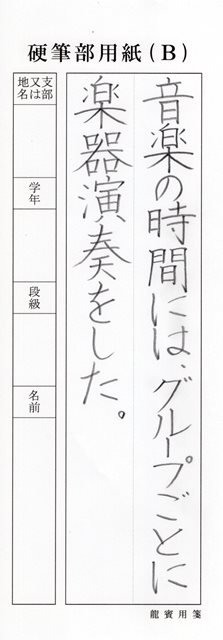 硬筆部用紙(B)
音楽の時間には、グループごとに
楽器演奏をした。
支部又は地名
学年
段級
名前
龍賓用箋